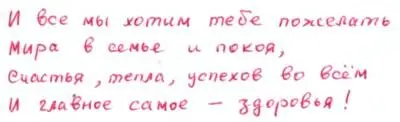 И все мы хотим тебе пожелать
Мира в семье и покоя,
Счастья, тепла, успехов во всём
И главное самое – здоровья!